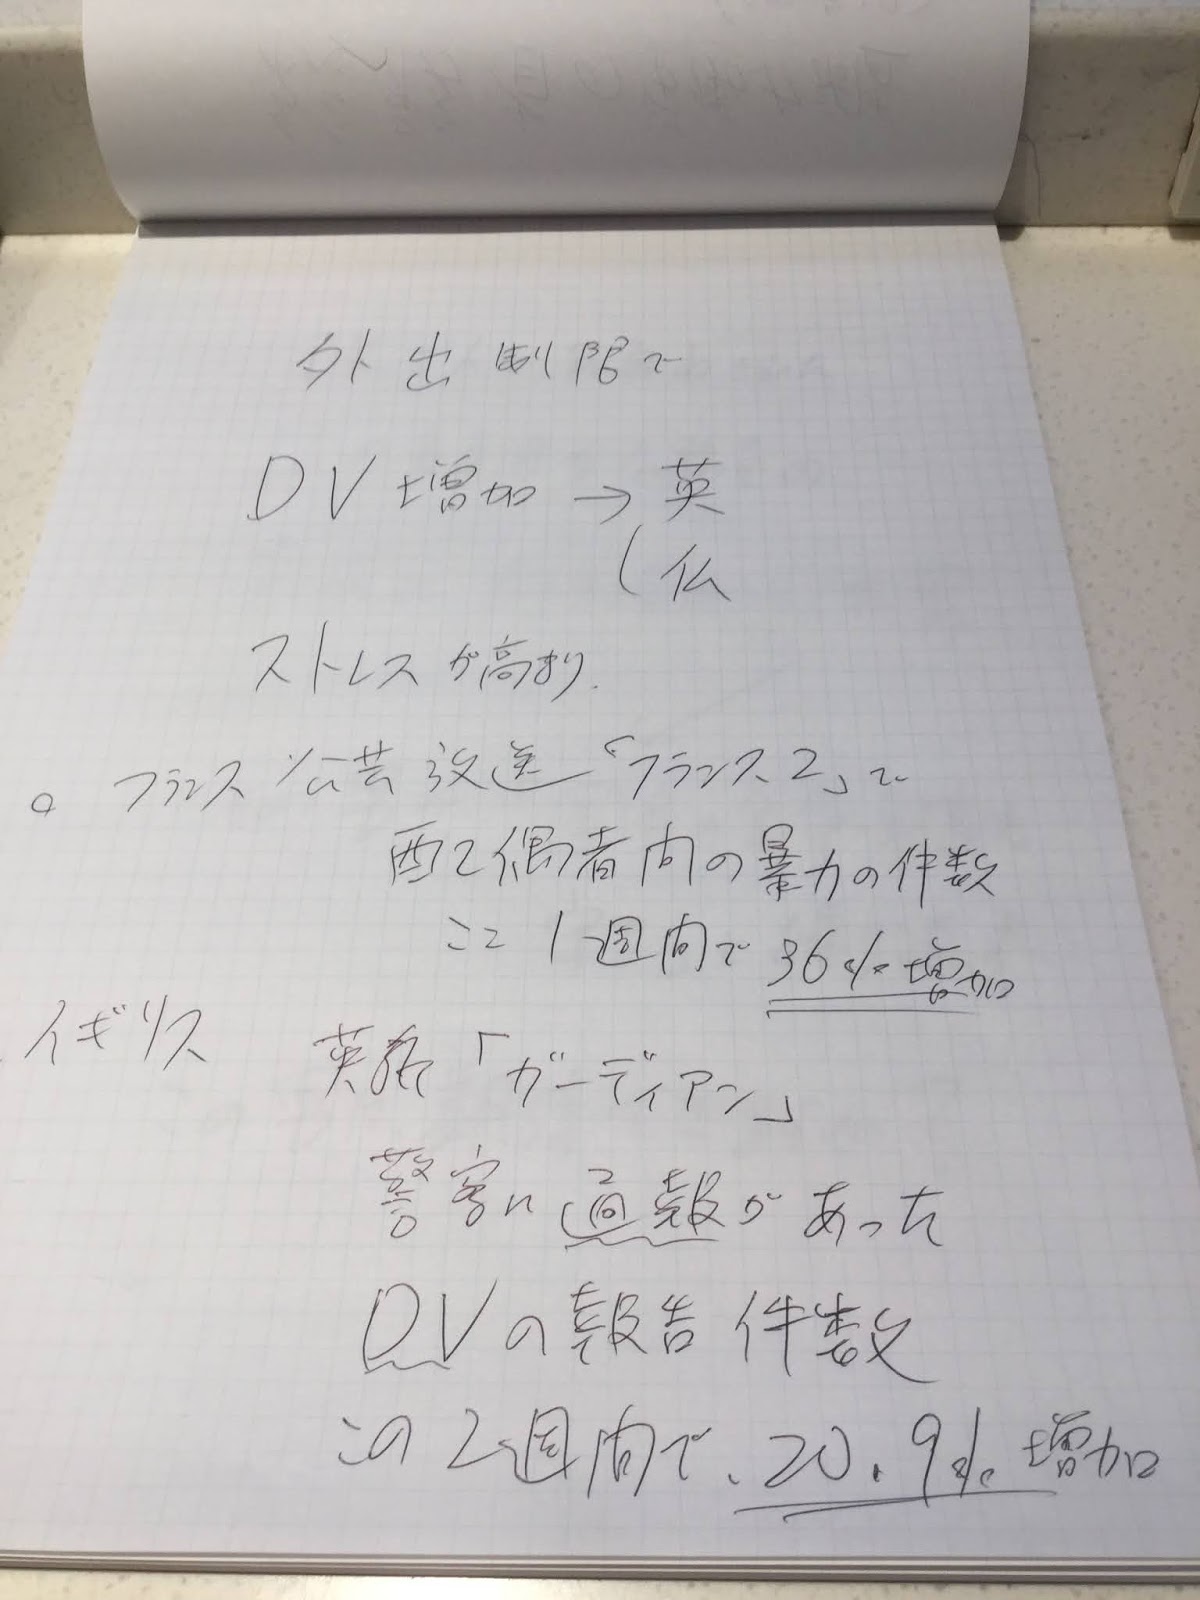 外出制限で
DV増加→英
(仏
ストレスが高まり.
。フランス公共放送「フランス2」で
配偶者間の暴力の件数
ここ1週間で36%増加
・イギリス 英紙「ガーディアン」
警察に通報があった
DVの報告件数
この2週間で、20.9%増加